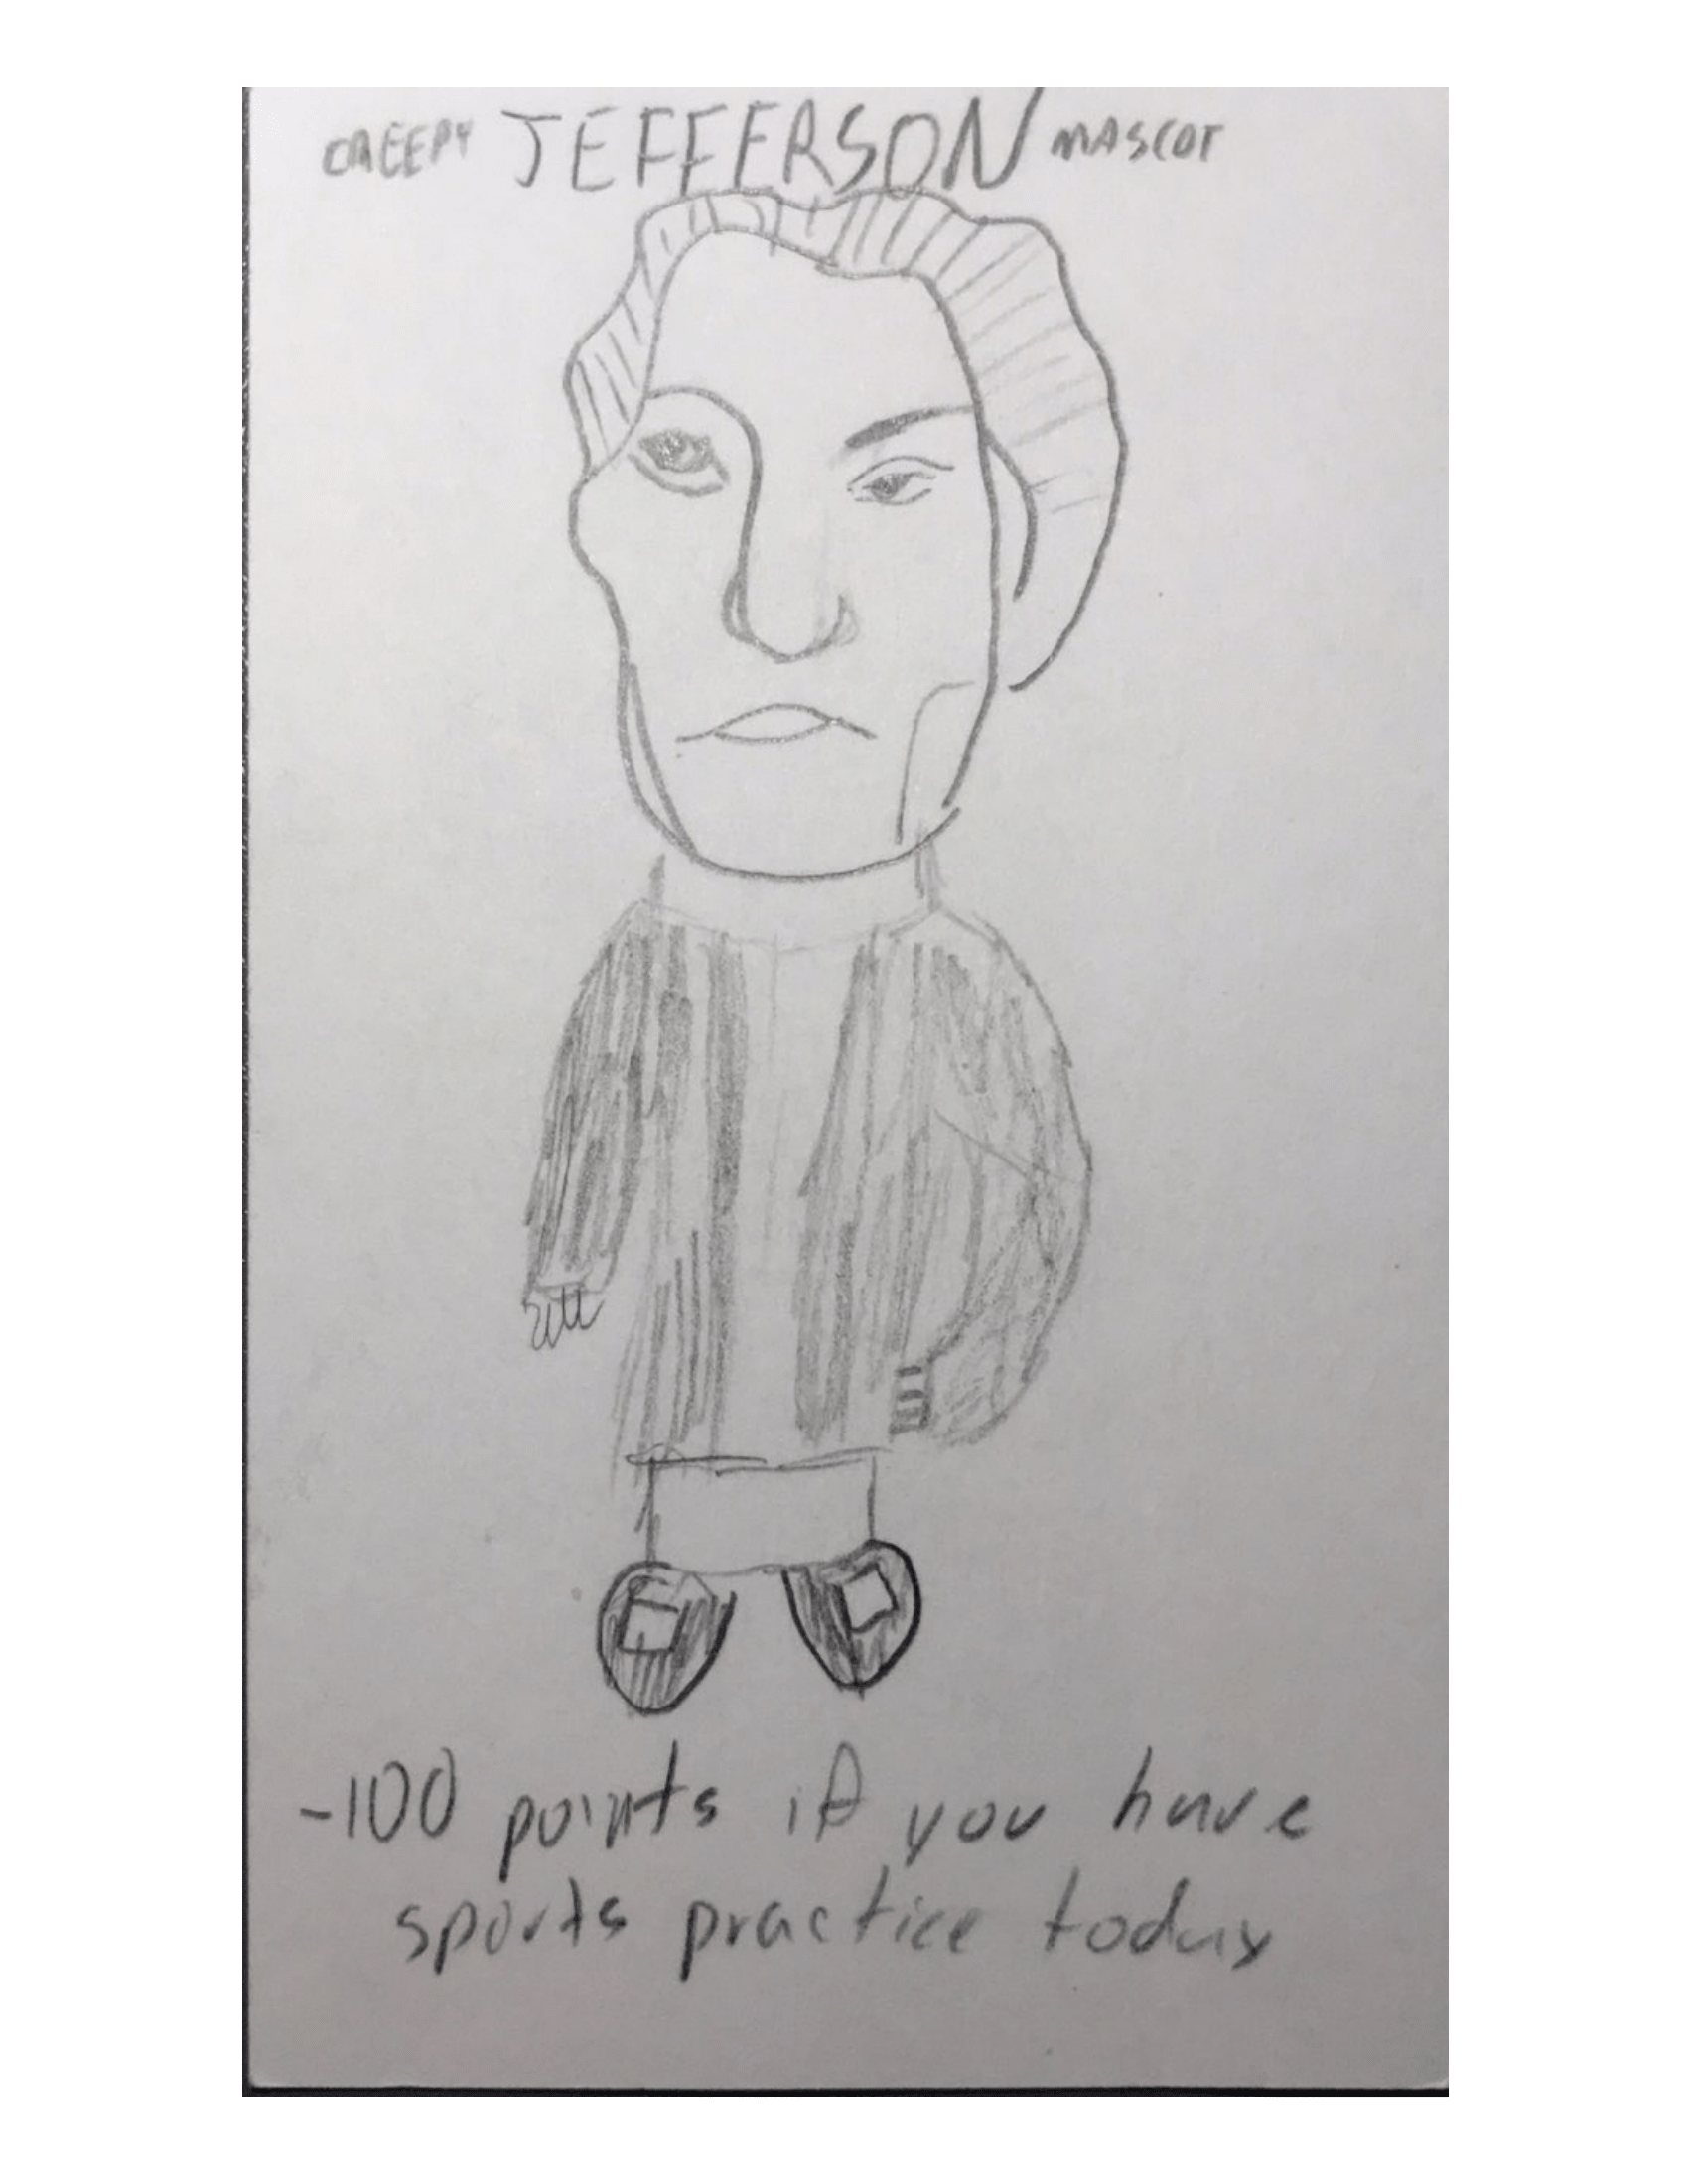 CREEPY JEFFERSON MASCOT
-100 points if you have
sports practice today